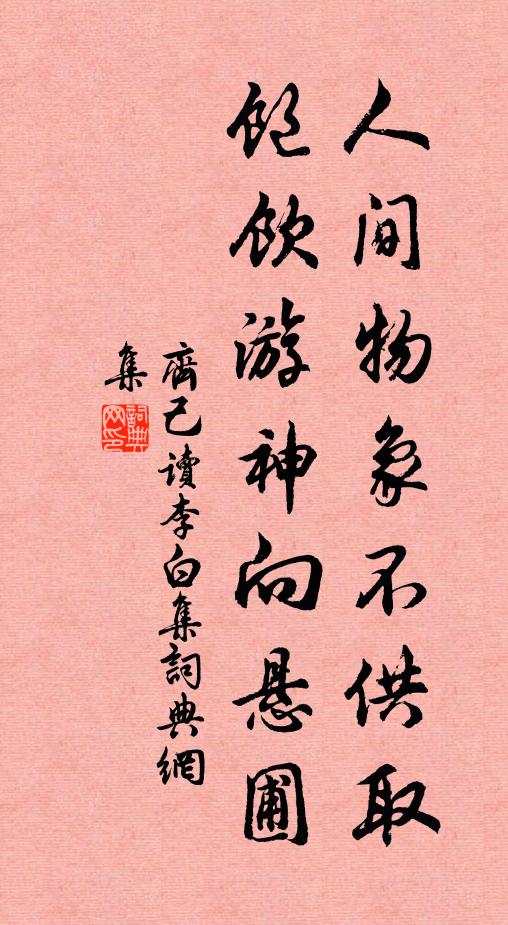 人间物象不供取
饱饮游神向悬圃
齊己读李白集詞典網
集
詞典網印